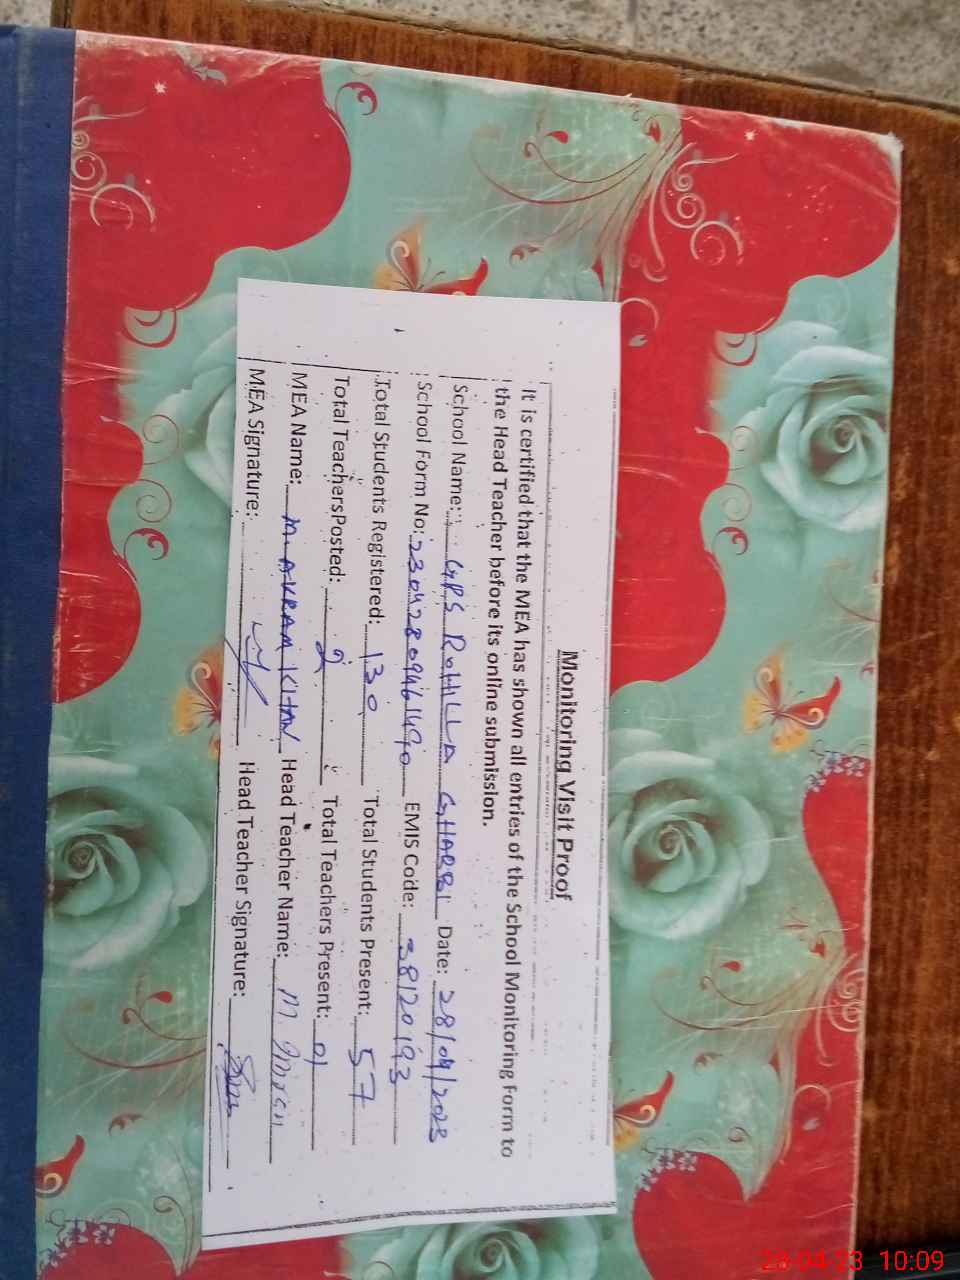 Monitoring Visit Proof
It is certified that the MEA has shown all entries of the School Monitoring Form to
the Head Teacher before its online submission.
School Name: GPS ROHILLA GHARBI Date: 28/04/2023
School Form No: 23042809461490 EMIS Code: 38120193
Total Students Registered: 130 Total Students Present: 57
Total TeachersPosted: 2 Total Teachers Present: 01
MEA Name: M. AKRAM KHAN Head Teacher Name: M.
MEA Signature: Head Teacher Signature:
28-04-23 10:09